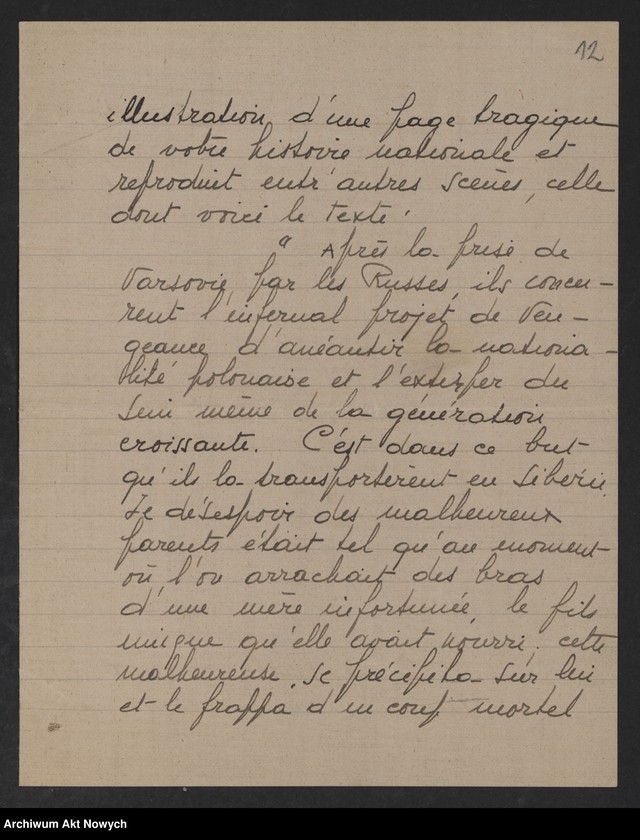 12
illustration d'une page tragique
de votre histoire nationale et
reproduit entr'autres scènes, celle
dont voici le texte :
" Après la prise de
Varsovie par les Russes, ils conçu-
rent l'infernal projet de ven-
geance d'anéantir la nationa-
lité polonaise et l'extirper du
sein même de la génération
croissante. C'est dans ce but
qu'ils la transportèrent en Sibérie.
Le désespoir des malheureux
parents était tel qu'au moment
où l'on arrachait des bras
d'une mère infortunée, le fils
unique qu'elle avait nourri, cette
malheureuse se précipita sur lui
et le frappa d'un coup mortel
Archiwum Akt Nowych